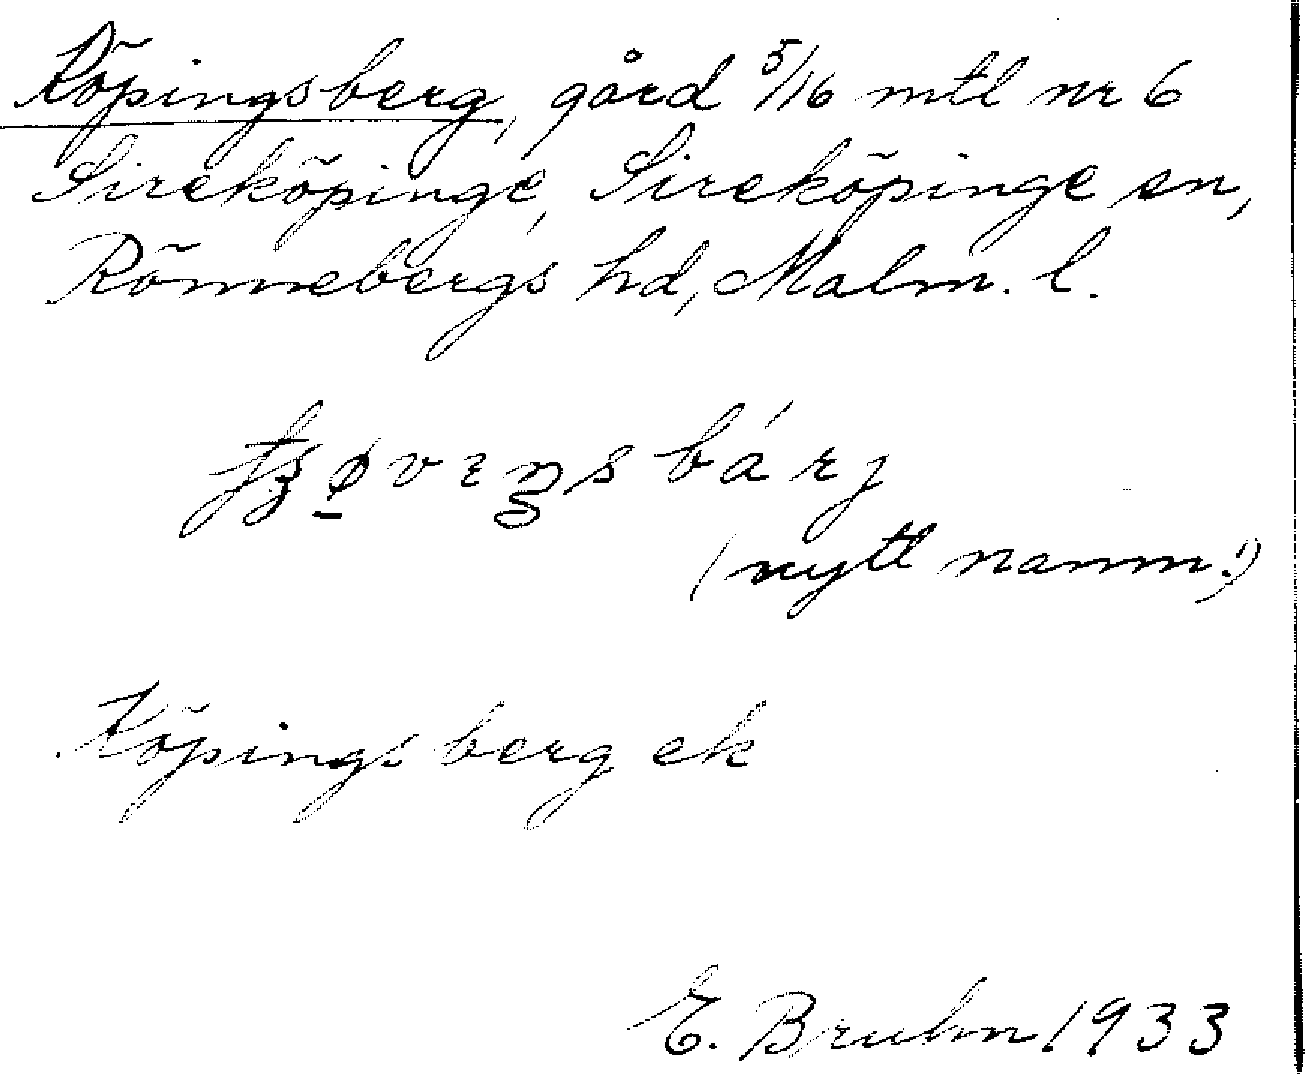 Köpingsberg, gård 5/16 mtl nr 6
Sireköpinge, Sireköpinge sn,
Rönnebergs hd, Malm. l.
bárj
(nytt namn!)
Köpingsberg ek
E. Bruhn 1933